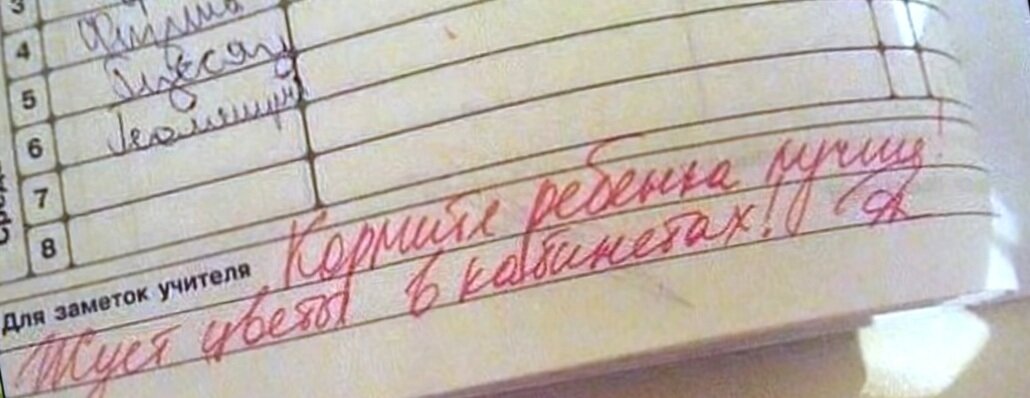 3
4 Физика
5
6
7
8
Для заметок учителя Кормите ребенка лучше!
Жует цветы в кабинетах!